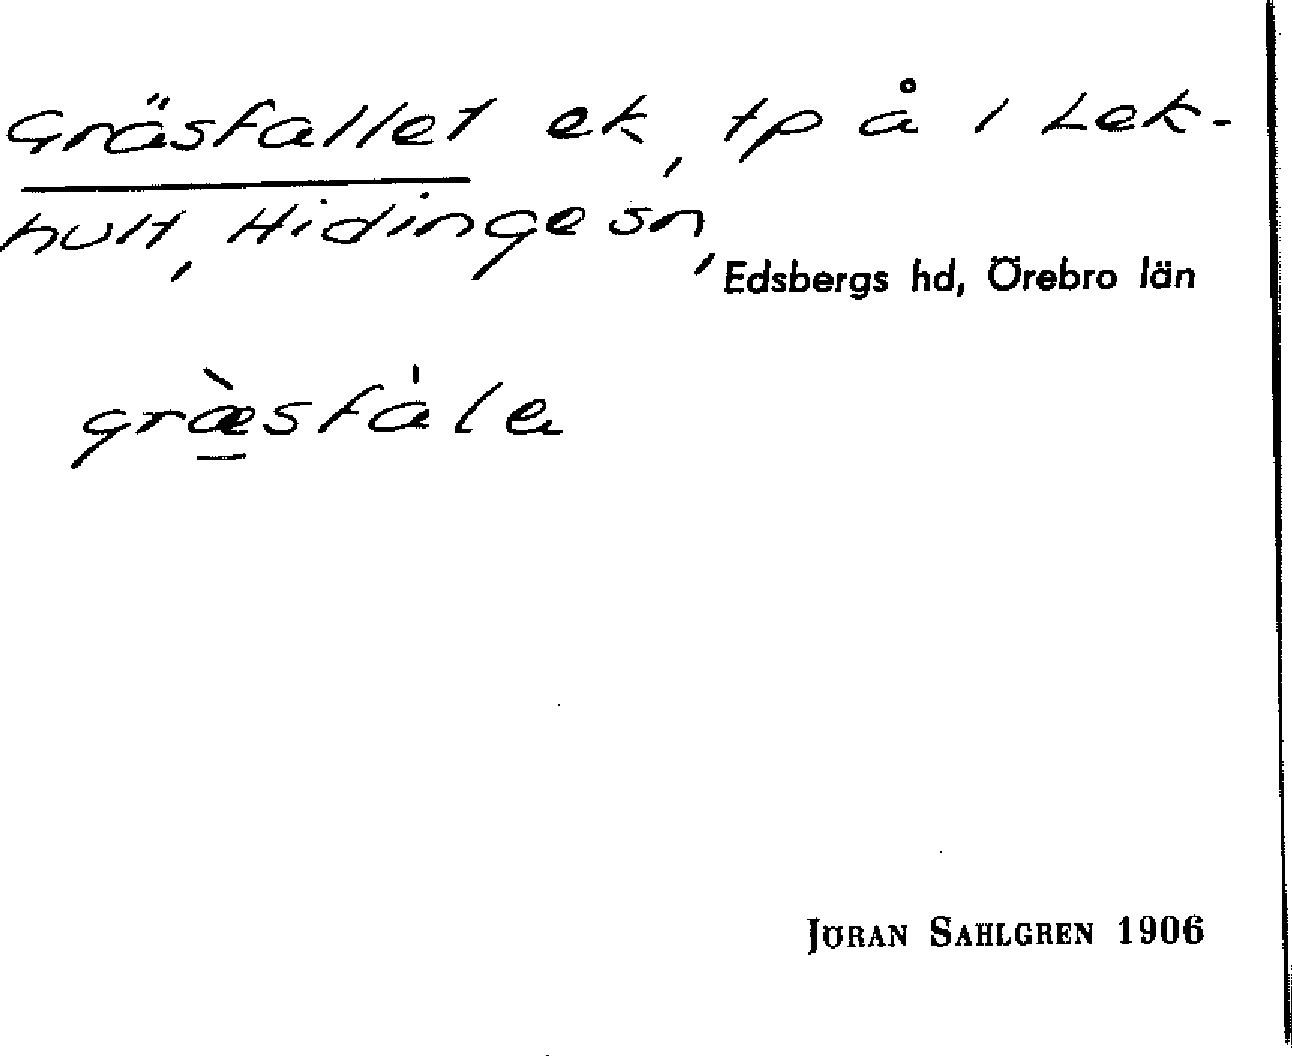 Gräsfallet ek, tp å 1 Lek-
hult, Hidinge sn,
Edsbergs hd, Örebro län
græ̀sfa̍le
JÖRAN SAHLGREN 1906